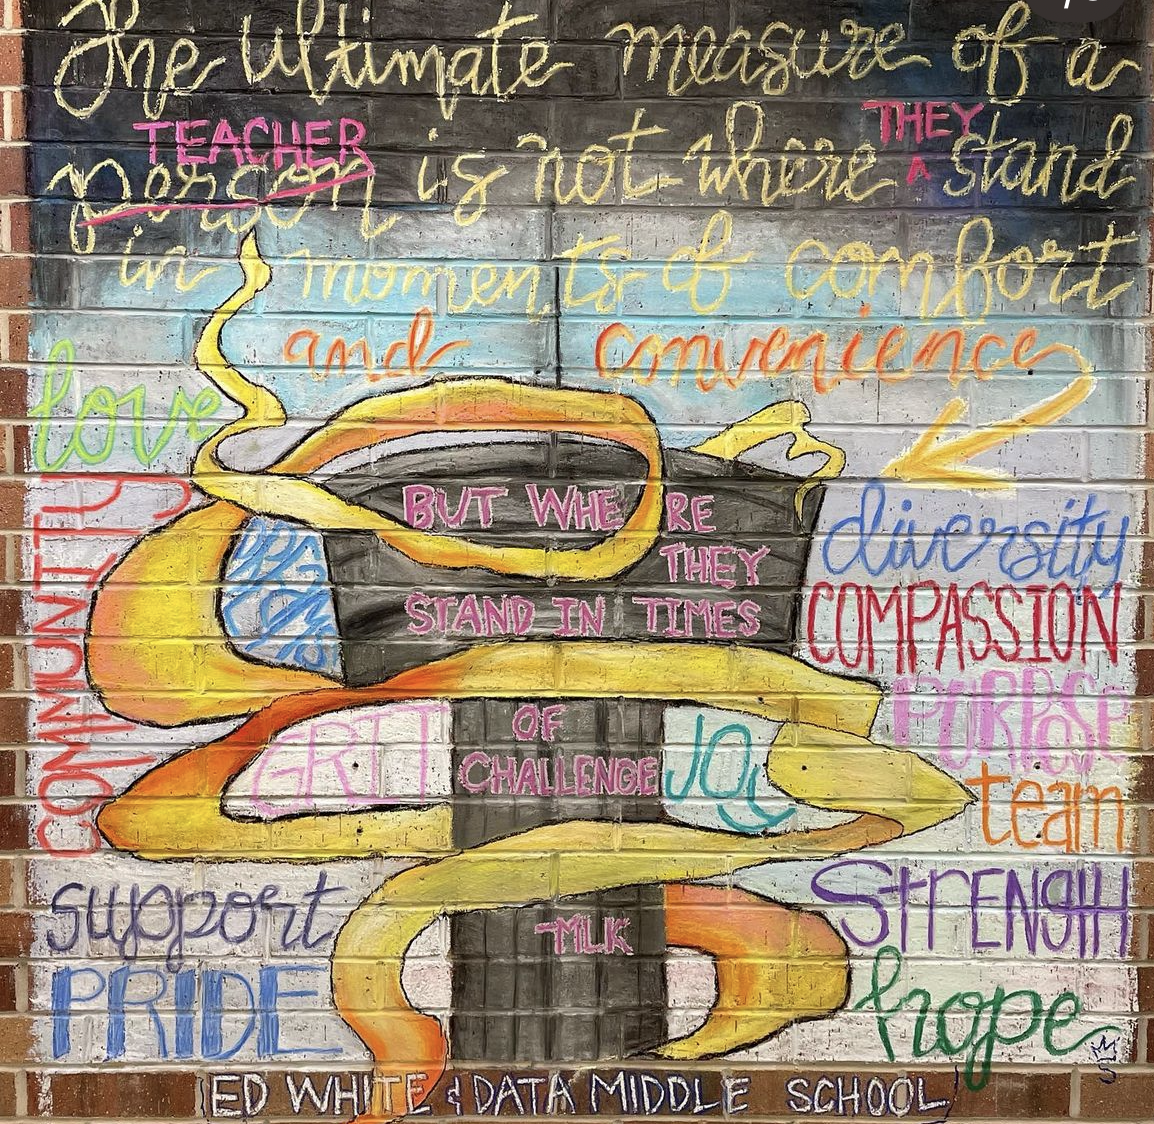 The ultimate measure of a
TEACHER THEY
person is not where ^ stand
in moments of comfort
and convenience
love
COMMUNITY
BUT WHERE
THEY
STAND IN TIMES
OF
CHALLENGE
-MLK
diversity
COMPASSION
PURPOSE
GRIT
JOY
team
support
STRENGTH
PRIDE
hope
ED WHITE & DATA MIDDLE SCHOOL